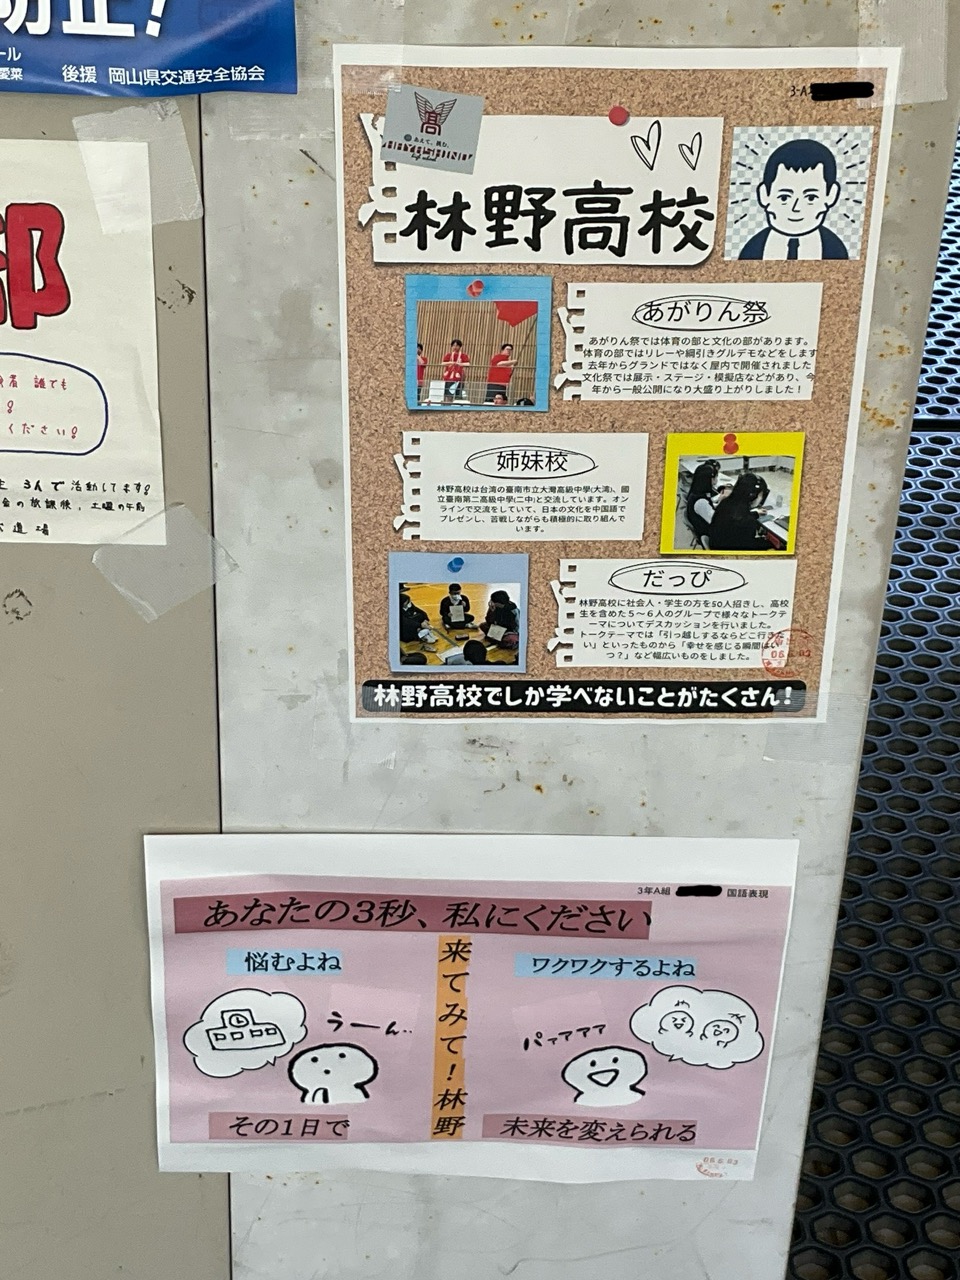 防止!
ール
愛菜 後援 岡山県交通安全協会
部
誰でも
ください!
3人で活動してます!
の放課後、土曜の午前
道場
3-A
高
あえて、挑む。
high school
林野高校
あがりん祭
あがりん祭では体育の部と文化の部があります。
体育の部ではリレーや綱引きグルデモなどをします
去年からグランドではなく屋内で開催されました
文化祭では展示・ステージ・模擬店などがあり、今
年から一般公開になり大盛り上がりしました!
姉妹校
林野高校は台湾の臺南市立大灣高級中學(大湾)、國
立臺南第二高級中學(二中)と交流しています。オン
ラインで交流をしていて、日本の文化を中国語で
プレゼンし、苦戦しながらも積極的に取り組んで
います。
だっぴ
林野高校に社会人・学生の方を50人招きし、高校
生を含めた5～6人のグループで様々なトークテ
ーマについてデスカッションを行いました。
トークテーマでは「引っ越しするならどこ行きた
い」といったものから「幸せを感じる瞬間はい
つ?」など幅広いものをしました。
林野高校でしか学べないことがたくさん!
3年A組 国語表現
あなたの3秒、私にください
悩むよね
来てみて!林野
ワクワクするよね
うーん‥
パァァァァ
その1日で
未来を変えられる